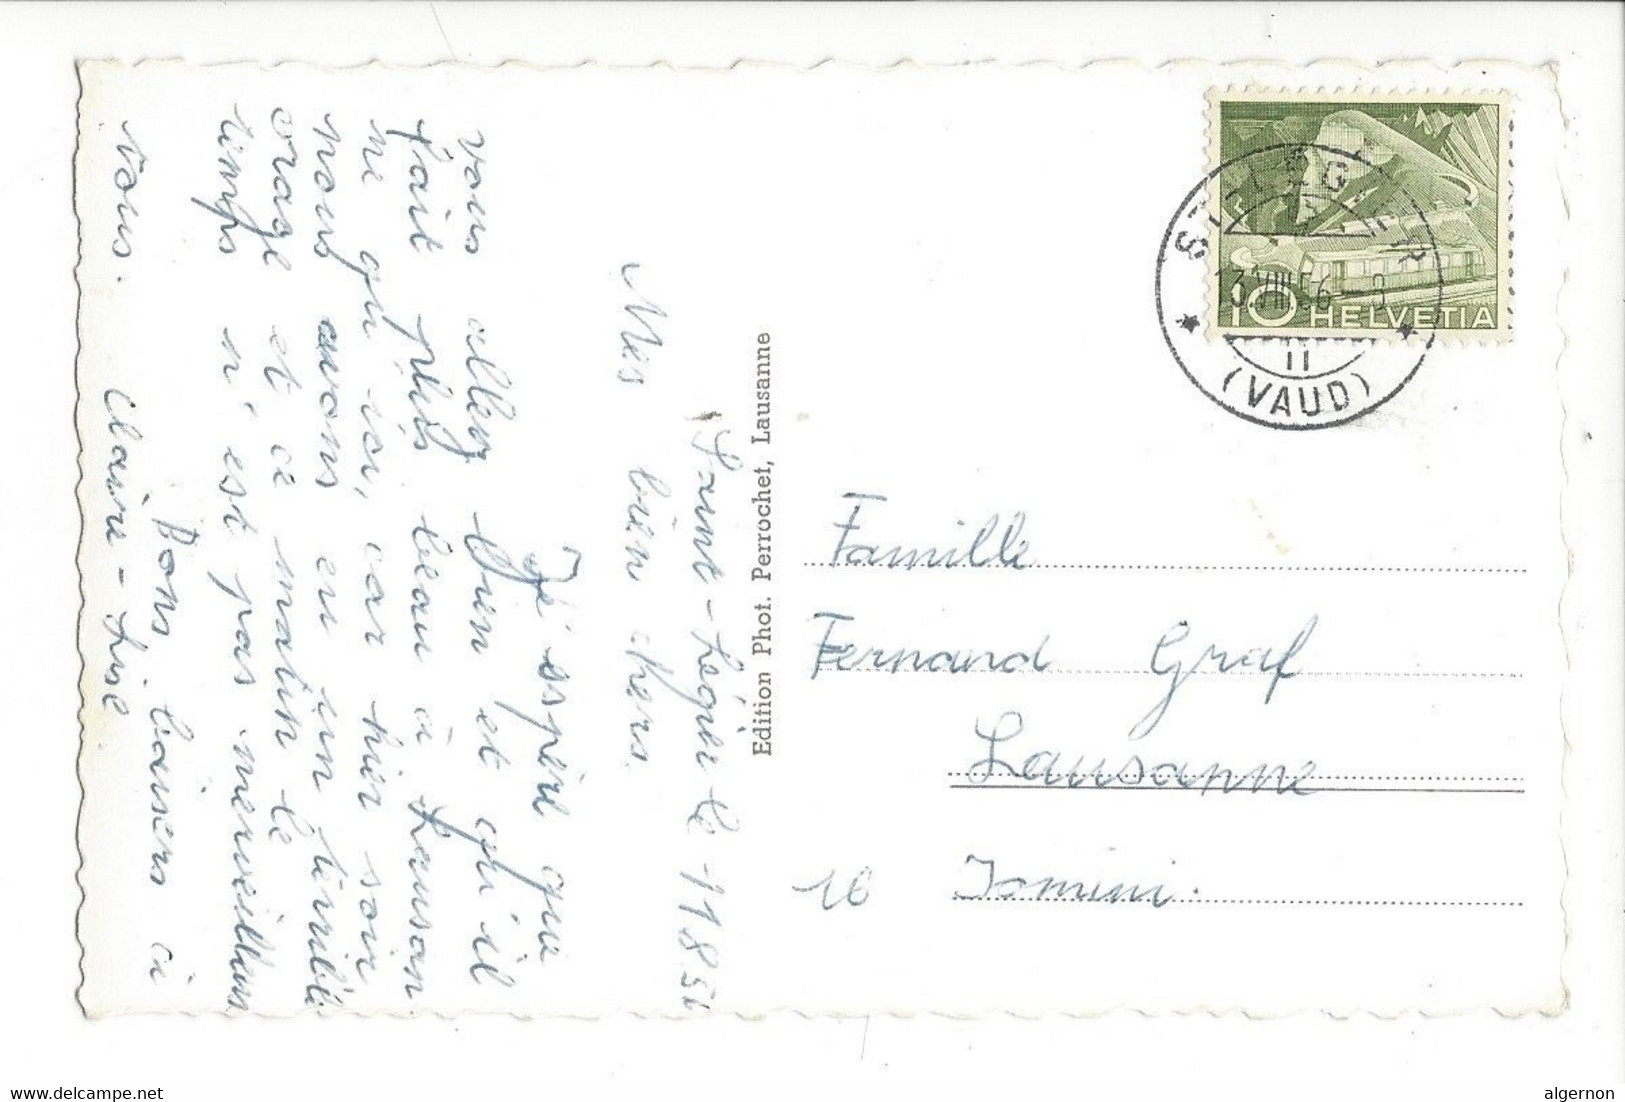 Saint-Légier le 11 8 56
Mes bien chers.
J'espère que
vous allez bien et qu'il
fait plus beau à Lausan
ne qu'ici, car hier soir
nous avons eu un terribl
orage et ce matin le
temps n'est pas merveilleux
Bons baisers à
tous. Claire-Lise
Edition Phot. Perrochet, Lausanne
ST-LÉGIER
13.VIII.56.-8
II
(VAUD)
10 HELVETIA
Famille
Fernand Graf
Lausanne
16
Jomini.
delcampe.net
algernon